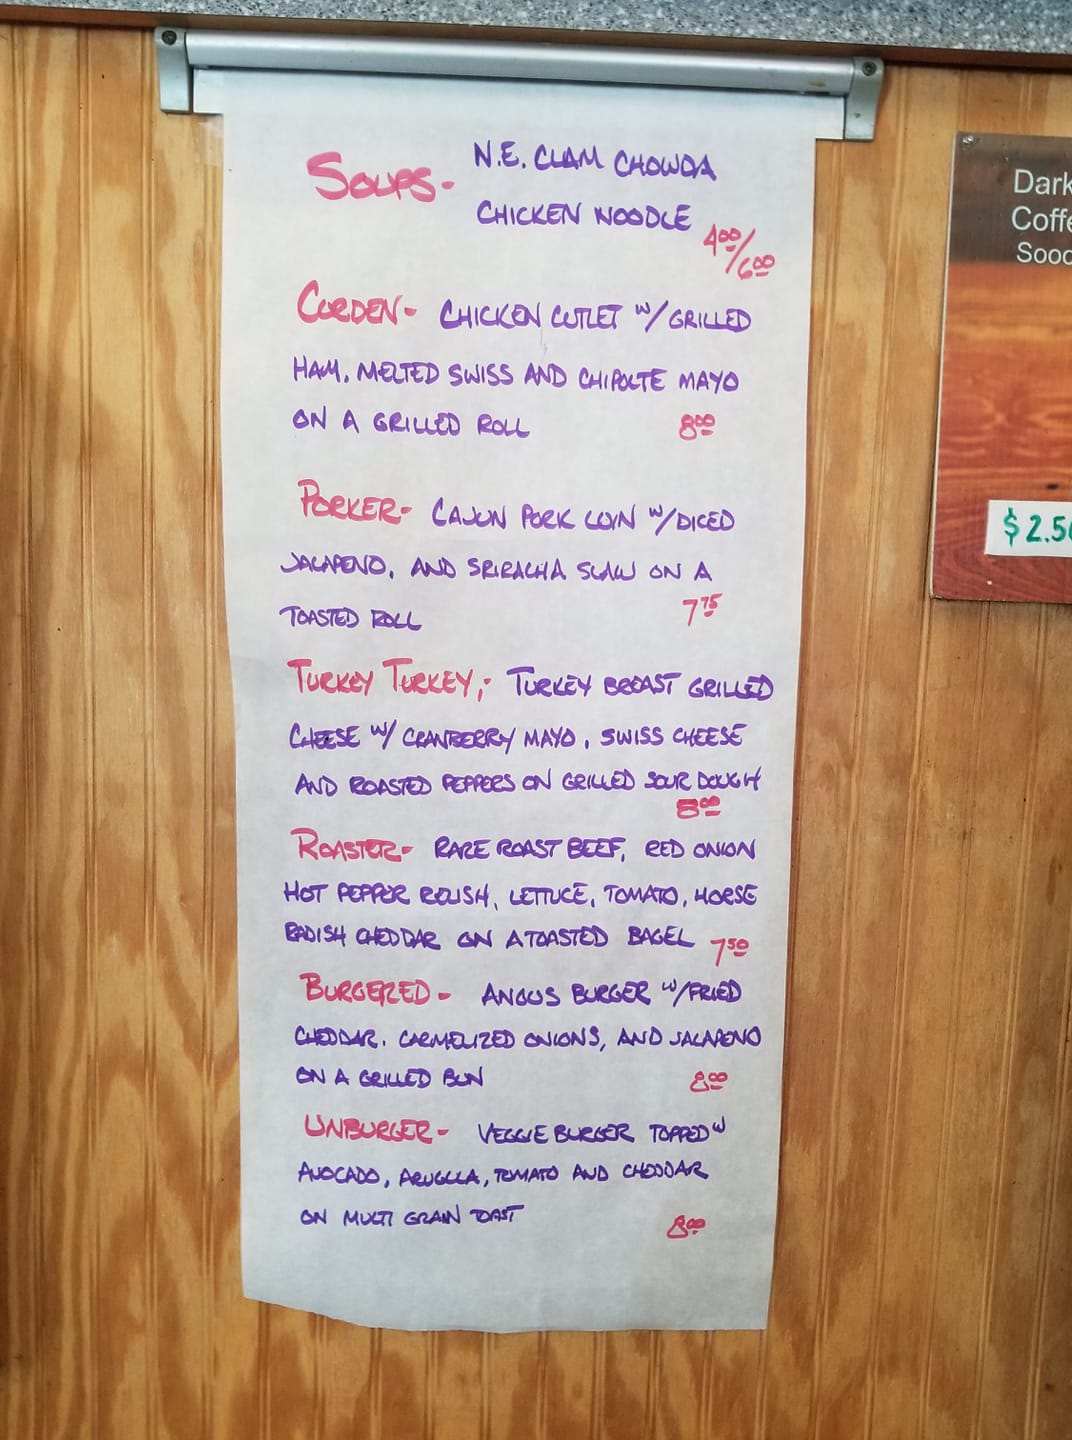 SOUPS- N.E. CLAM CHOWDA
CHICKEN NOODLE
4.00/6.00
CORDEN- CHICKEN CUTLET W/GRILLED
HAM. MELTED SWISS AND CHIPOLTE MAYO
ON A GRILLED ROLL 8.00
PORKER- CAJUN PORK LOIN W/DICED
JALAPENO, AND SRIRACHA SLAW ON A
TOASTED ROLL 7.75
TURKEY TURKEY,- TURKEY BREAST GRILLED
CHEESE W/ CRANBERRY MAYO, SWISS CHEESE
AND ROASTED PEPPERS ON GRILLED SOUR DOUGH
8.00
ROASTER- RARE ROAST BEEF, RED ONION
HOT PEPPER RELISH, LETTUCE, TOMATO, HORSE
RADISH CHEDDAR ON A TOASTED BAGEL 7.50
BURGERED- ANGUS BURGER W/FRIED
CHEDDAR. CARMELIZED ONIONS, AND JALAPENO
ON A GRILLED BUN 8.00
UNBURGER- VEGGIE BURGER TOPPED W
AVOCADO, ARUGULA, TOMATO AND CHEDDAR
ON MULTI GRAIN TOAST 8.00
Dark
Coffe
$2.50